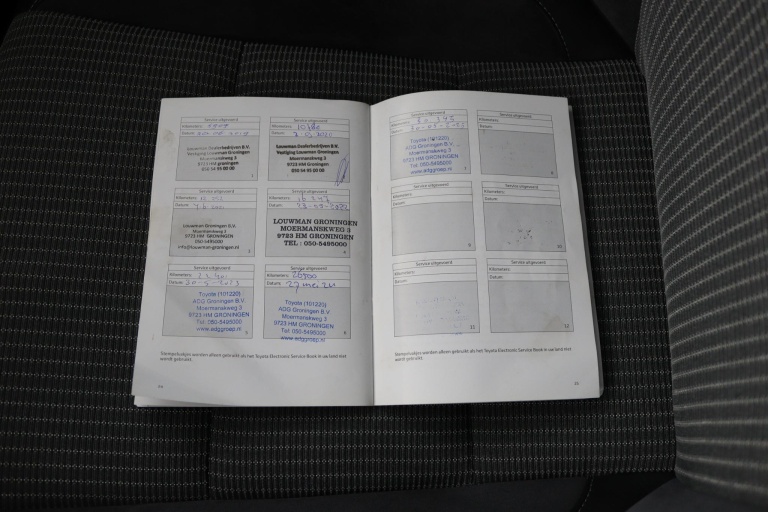 Service uitgevoerd
Kilometers:
Datum:
Louwman Dealerbedrijven B.V.
Vestiging Louwman Groningen
Moermanskweg 3
9723 HM groningen
050 54 95 00 00
1
Service uitgevoerd
Kilometers:
Datum:
Louwman Dealerbedrijven B.V.
Vestiging Louwman Groningen
Moermanskweg 3
9723 HM Groningen
050 54 95 00 00
2
Service uitgevoerd
Kilometers:
Datum:
Louwman Groningen B.V.
Moermanskweg 3
9723 HM GRONINGEN
050-5495000
info@louwman-groningen.nl
3
Service uitgevoerd
Kilometers:
Datum:
LOUWMAN GRONINGEN
MOERMANSKWEG 3
9723 HM GRONINGEN
TEL : 050-5495000
4
Service uitgevoerd
Kilometers:
Datum:
Toyota (101220)
ADG Groningen B.V.
Moermanskweg 3
9723 HM GRONINGEN
Tel: 050-5495000
www.adggroep.nl
5
Service uitgevoerd
Kilometers:
Datum:
Toyota (101220)
ADG Groningen B.V.
Moermanskweg 3
9723 HM GRONINGEN
Tel: 050-5495000
www.adggroep.nl
6
Stempelvakjes worden alleen gebruikt als het Toyota Electronic Service Book in uw land niet
wordt gebruikt.
Service uitgevoerd
Kilometers:
Datum:
Toyota (101220)
ADG Groningen B.V.
Moermanskweg 3
9723 HM GRONINGEN
Tel: 050-5495000
www.adggroep.nl
7
Service uitgevoerd
Kilometers:
Datum:
8
Service uitgevoerd
Kilometers:
Datum:
9
Service uitgevoerd
Kilometers:
Datum:
10
Service uitgevoerd
Kilometers:
Datum:
11
Service uitgevoerd
Kilometers:
Datum:
12
Stempelvakjes worden alleen gebruikt als het Toyota Electronic Service Book in uw land niet
wordt gebruikt.